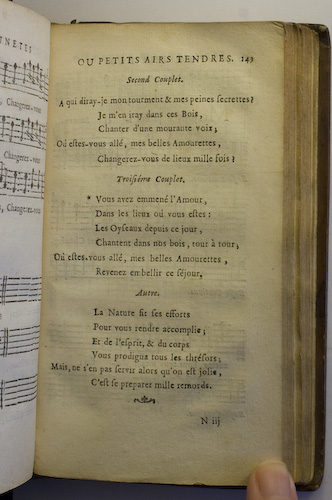 UNETES
Changerez-vous
, Changerez-vous
, Changerez-vous
OU PETITS AIRS TENDRES. 149
Second Couplet.
A qui diray-je mon tourment & mes peines secrettes?
Je m'en iray dans ces Bois,
Chanter d'une mourante voix;
Où estes-vous allé, mes belles Amourettes,
Changerez-vous de lieux mille fois?
Troisiéme Couplet.
* Vous avez emmené l'Amour,
Dans les lieux où vous estes:
Les Oyseaux depuis ce jour,
Chantent dans nos bois, tour à tour,
Où estes-vous allé, mes belles Amourettes,
Revenez embellir ce séjour.
Autre.
La Nature fit ses efforts
Pour vous rendre accomplie;
Et de l'esprit, & du corps
Vous prodigua tous les thrésors;
Mais, ne s'en pas servir alors qu'on est jolie,
C'est se preparer mille remords.
N iij